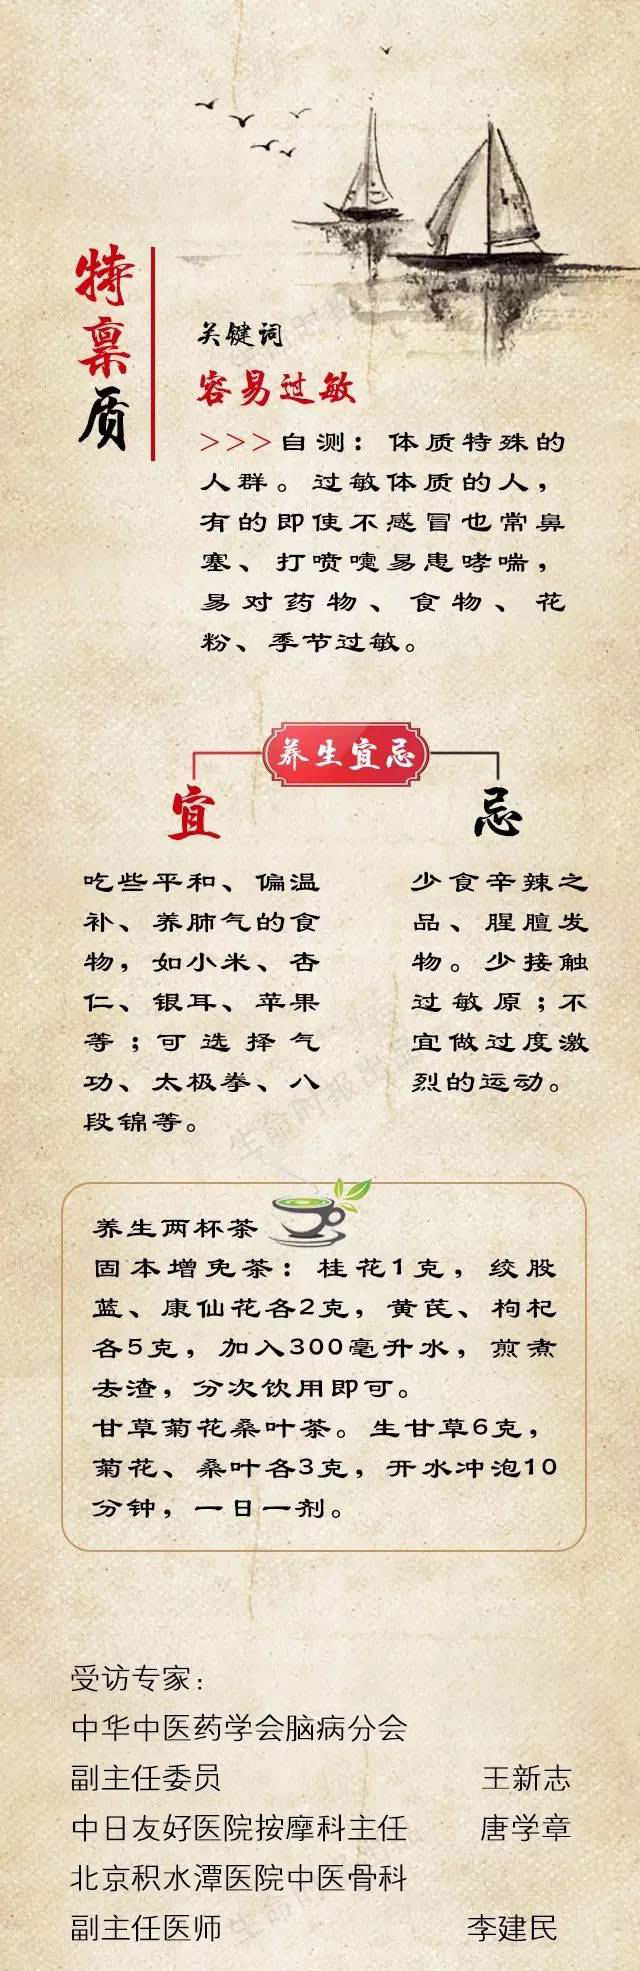 特禀质
关键词
容易过敏
>>>自测：体质特殊的
人群。过敏体质的人，
有的即使不感冒也常鼻
塞、打喷嚏易患哮喘，
易对药物、食物、花
粉、季节过敏。
养生宜忌
宜
吃些平和、偏温
补、养肺气的食
物，如小米、杏
仁、银耳、苹果
等；可选择气
功、太极拳、八
段锦等。
忌
少食辛辣之
品、腥膻发
物。少接触
过敏原；不
宜做过度激
烈的运动。
养生两杯茶
固本增免茶：桂花1克，绞股
蓝、康仙花各2克，黄芪、枸杞
各5克，加入300毫升水，煎煮
去渣，分次饮用即可。
甘草菊花桑叶茶。生甘草6克，
菊花、桑叶各3克，开水冲泡10
分钟，一日一剂。
受访专家：
中华中医药学会脑病分会
副主任委员 王新志
中日友好医院按摩科主任 唐学章
北京积水潭医院中医骨科
副主任医师 李建民